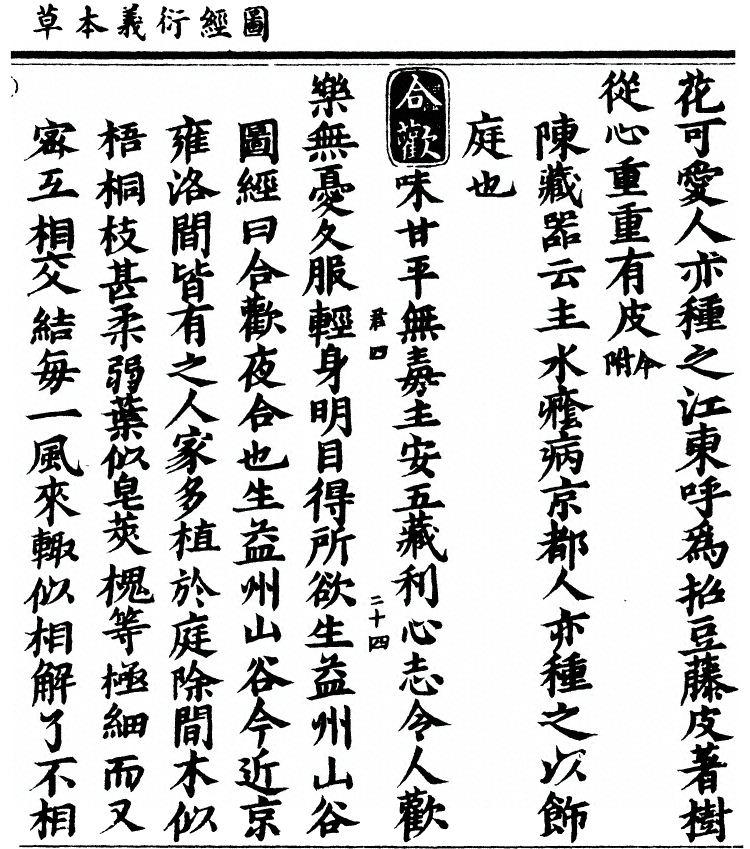 圖經衍義本草
花可愛人亦種之江東呼爲招豆藤皮著樹
從心重重有皮今附
陳藏器云主水癊病京都人亦種之以飾
庭也
合歡味甘平無毒主安五藏利心志令人歡
君四
二十四
樂無憂久服輕身明目得所欲生益州山谷
圖經曰合歡夜合也生益州山谷今近京
雍洛間皆有之人家多植於庭除間木似
梧桐枝甚柔弱葉似皂莢槐等極細而又
密互相交結每一風來輙似相解了不相